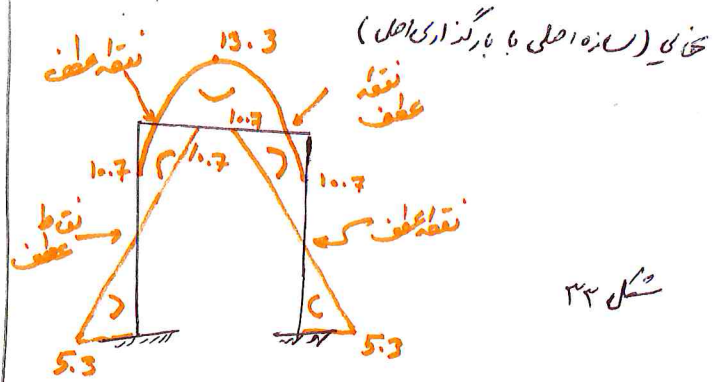 نهایی (سازه اصلی با بارگذاری اصلی)
13.3
نقطه عطف
نقطه
عطف
10.7
10.7
10.7
10.7
نقاط
عطف
نقطه عطف
شکل ۳۳
5.3
5.3